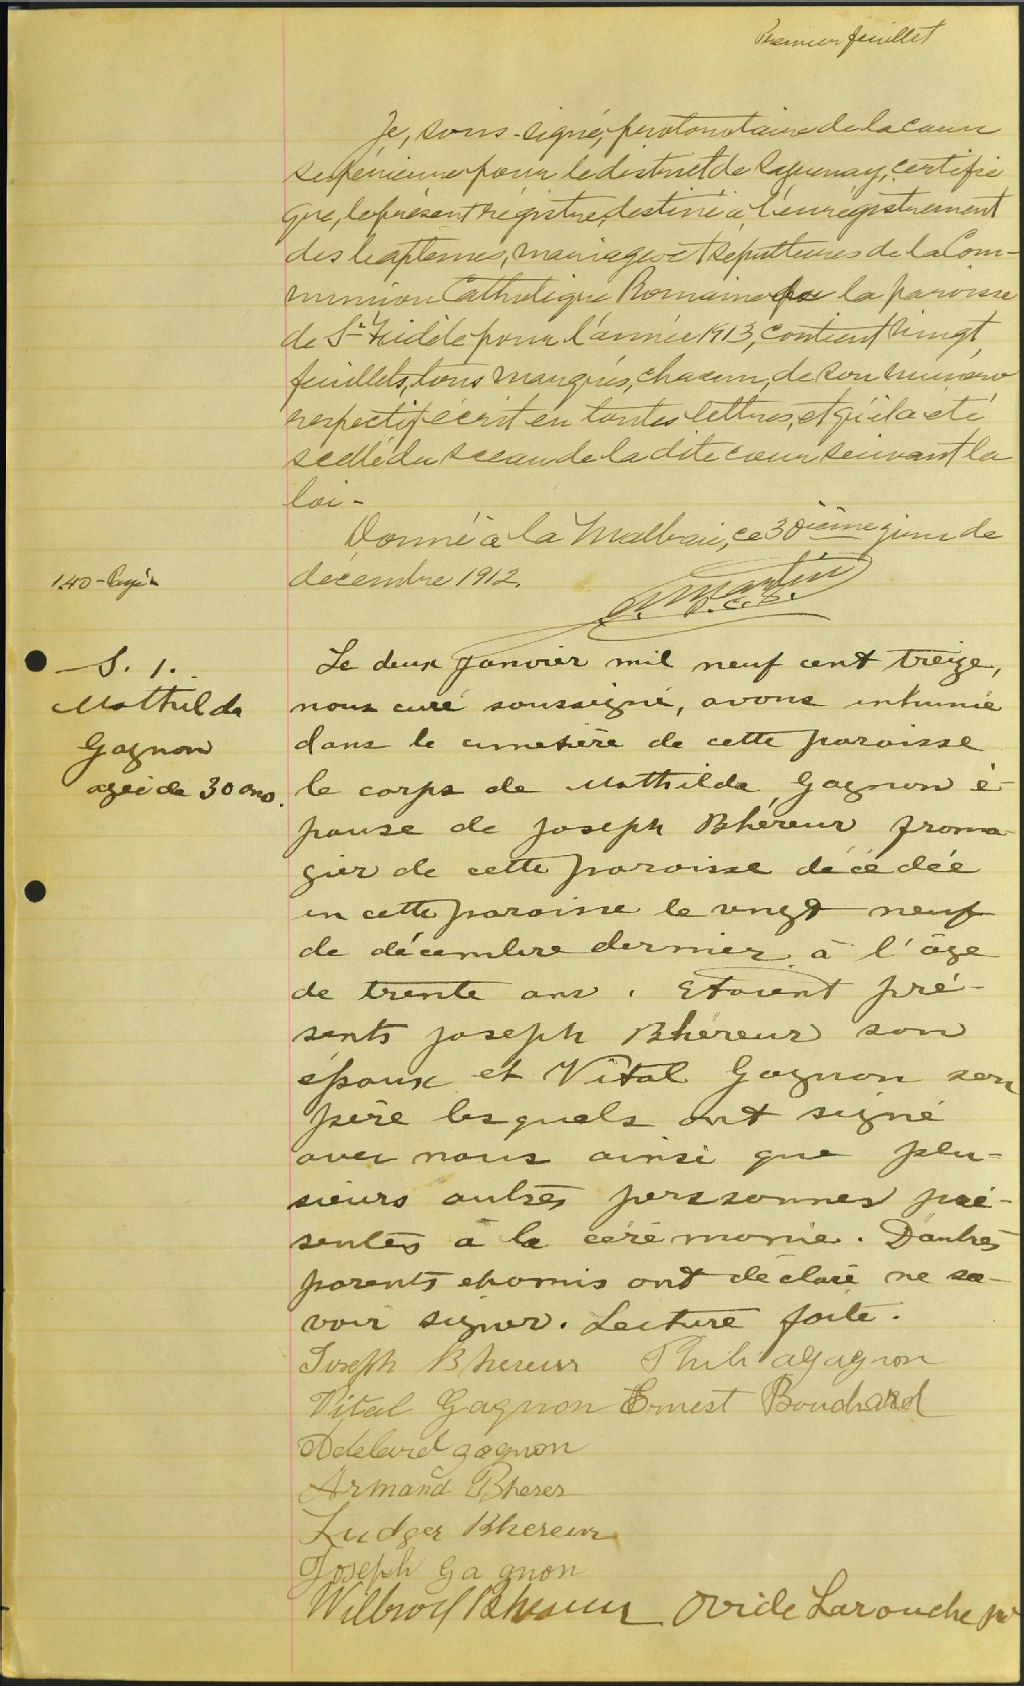 Premier feuillet
Je, sous-signé, protonotaire de la cour
supérieure pour le district de Saguenay, certifie
que, le présent régistre, destiné à l'enrégistrement
des baptêmes, mariages et sépultures de la Com-
munion Catholique Romaine pour la paroisse
de St Fidèle pour l'année 1913, contient vingt
feuillets, tous marqués, chacun, de son numéro
respectif écrit en toutes lettres, et qu'il a été
scellé du sceau de la dite cour suivant la
loi -
Donné à la Malbaie, ce 30ième jour de
décembre 1912.
1.40 - Payé
Martin
P. C. S.
S. 1.
Mathilda
Gagnon
agée de 30 ans.
Le deux janvier mil neuf cent treize,
nous curé soussigné, avons inhumé
dans le cimetière de cette paroisse
le corps de Mathilda Gagnon é-
pouse de Joseph Bhéreur froma-
gier de cette paroisse décédée
en cette paroisse le vingt neuf
de décembre dernier à l'âge
de trente ans. Etaient pré-
sents Joseph Bhéreur son
époux et Vital Gagnon son
père lesquels ont signé
avec nous ainsi que plu-
sieurs autres perssonnes pré-
sentes à la cérémonie. D'autres
parents et amis ont déclaré ne sa-
voir signer. Lecture faite.
Joseph Bhereur Phili a Gagnon
Vital Gagnon Ernest Bouchard
Adelard gagnon
Armand Bherer
Ludger Bhereur
Joseph Gagnon
Wilbrod Bhereur Ovide Larouche ptr